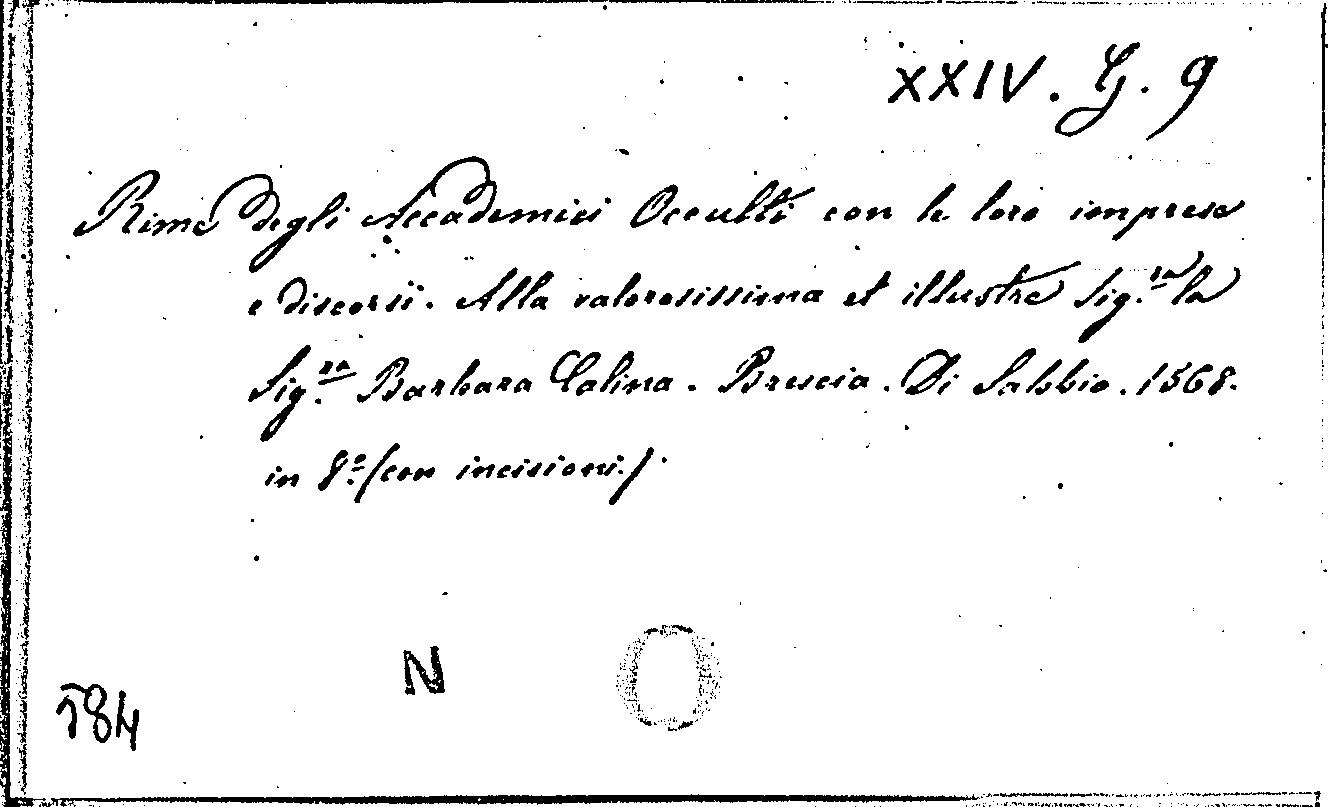 XXIV. G. 9
Rime degli Accademici Occulti con le loro imprese
e discorsi. Alla valorosissima et illustre Sig.ra la
Sig.ra Barbara Calina. Brescia. Di Sabbio. 1568.
in 8.° (con incisioni.)
N
584